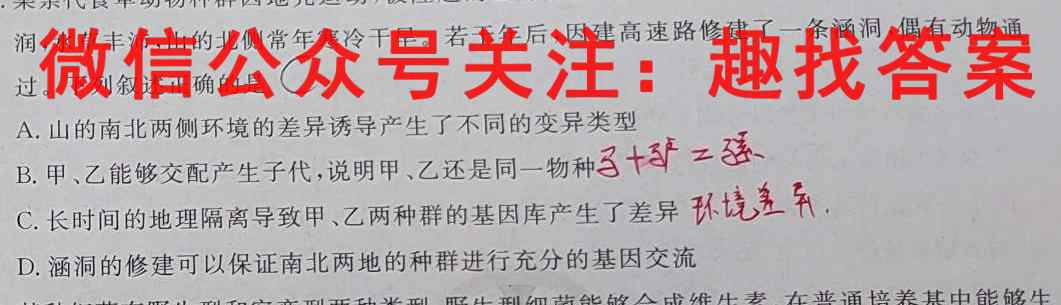 某条代食草动物种群因地壳运动,被
润 丰沛,山的北侧常年寒冷干旱。若干年后,因建高速路修建了一条涵洞,偶有动物通
过。下列叙述正确的是(
微信公众号关注：趣找答案
A. 山的南北两侧环境的差异诱导产生了不同的变异类型
B. 甲、乙能够交配产生子代,说明甲、乙还是同一物种 马+驴=骡
C. 长时间的地理隔离导致甲、乙两种群的基因库产生了差异 环境差异.
D. 涵洞的修建可以保证南北两地的种群进行充分的基因交流
野生型 两种类型,野生型细菌能够合成维生素 在普通培养基中能够生